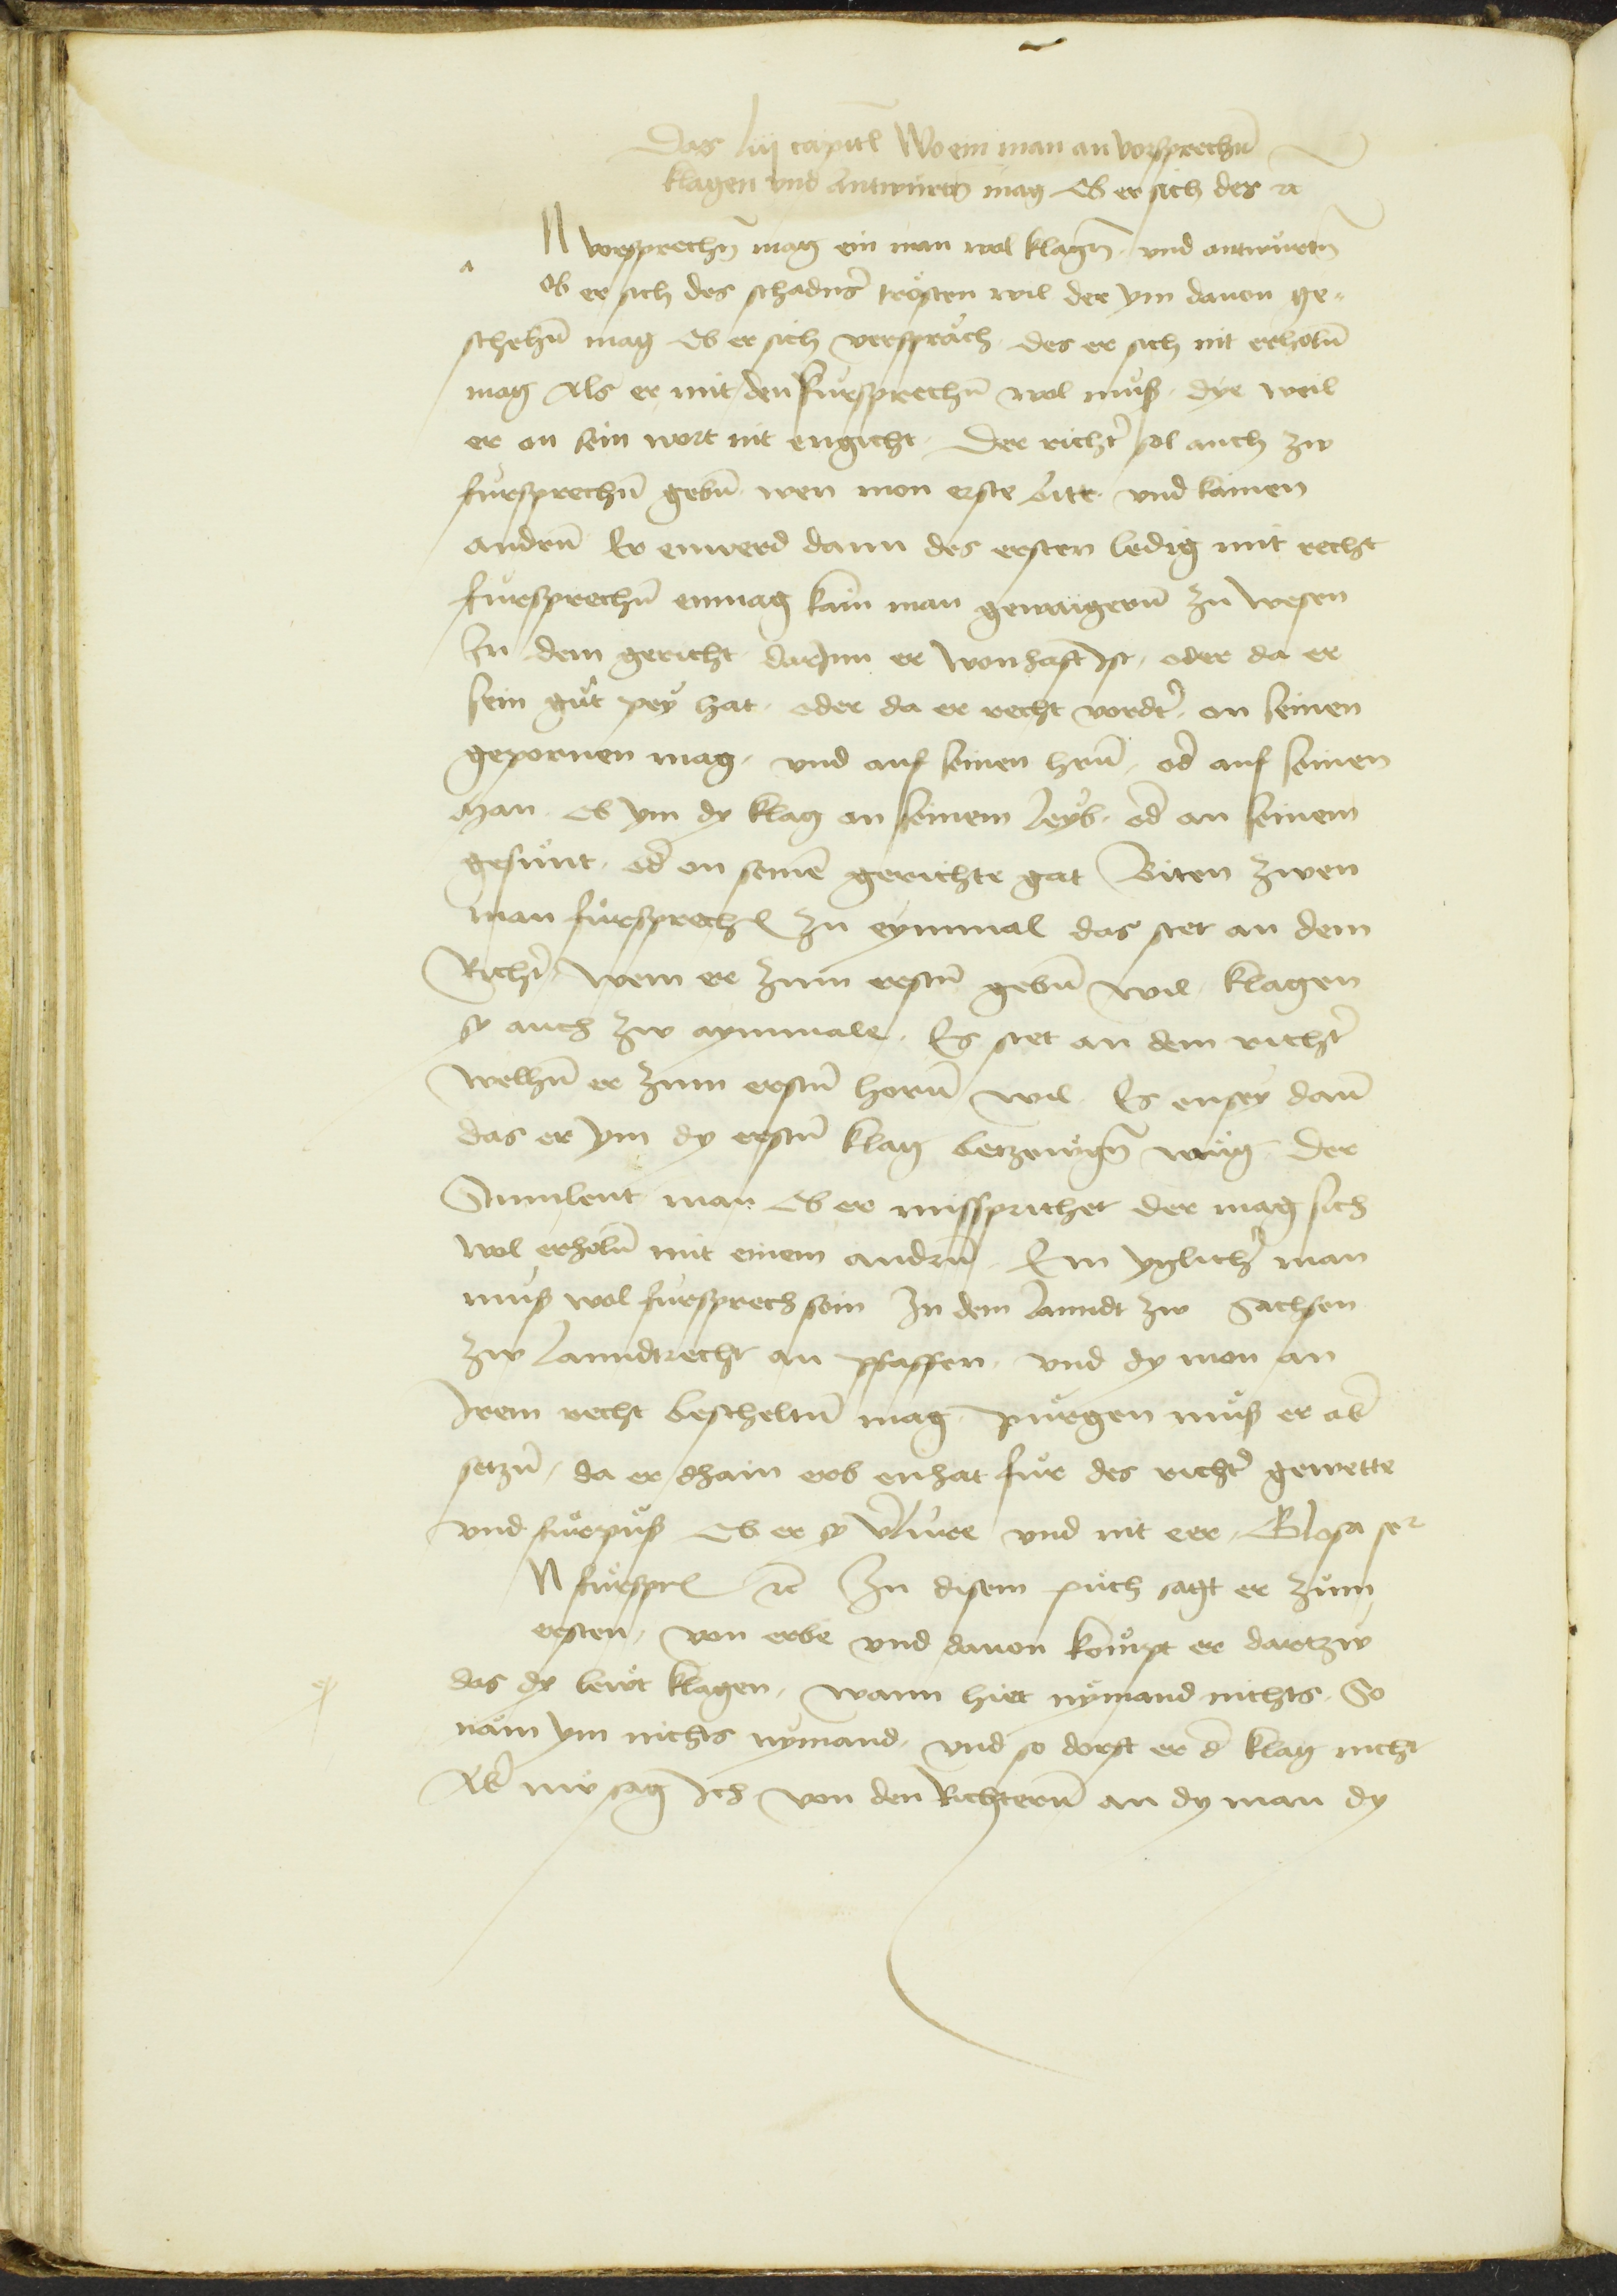 Das liij capitl Wo ein man an vorsprechñ
klagen vnd antwurtñ mag Ob er sich des ꝛc
N vorsprechñ mag ein man wol klagñ . vnd antwůrtñ
a
ob er sich des schadns̉ trösten wil der ym dauon ge-
schehñ mag Ob er sich verspräch des er sich nit erholñ
mag Als er mit den fůrsprechñ wol můß . dye weil
er an sein wort nit engicht . Der richt̉ sol auch zw
fůrsprechñ gebñ wen mon erste bitt vnd kainen
andrñ Er enwerd dann des ersten ledig mit recht
fůrsprechñ enmag kain man gewaigernñ zu wesen
In dem gericht darJnn er wonhaft Jst , oder da er
sein gůt pey hat . oder da er recht vordt̉ . on seinen
gepornen mag , vnd auf seinen hernñ , od̉ auf seinen
man . Ob ym dy klag an seinem leyb . od̉ an seinem
gesůnt . od̉ on seinē gerichte gat Biten zwen
man fůrsprechn zu eynmal das stet an dem
Richt̉ . wem er zum erstñ gebñ wil . klagen
sy auch zw aynmale . Es stet an dem richt̉
welhñ er zum erstñ hornñ wil . Es ensey dañ
das er ym dy erstñ klag betzewgñ můg . Der
Stmlent man Ob er misssprichet der mag sich
wol erholñ mit einem andrñ . Ein yglich̉ man
můß wol fůrsprech sein In dem lanndt zw Sachsen
zw lanndtrecht an pfaffen . vnd dy mon an
Jrem recht bescheltñ mag . pürgen můß er ab̉
setzñ , da er chain erb enhat fůr des richt̉ gewette
vnd fůrpůß Ob er sy v̉lůre vnd nit eer . Glosa sr̃
N fůrsprn ꝛc In disem půch sagt er zům
ersten , von erbe vnd dauon kömpt er dartzw
das dy lewt klagen , wann hiet nymand nichts . So
näm ym nichts nymand . vnd so dorft er d̉ klag nicht
Ab̉ nw sag Ich von den Richternñ an dy man dy